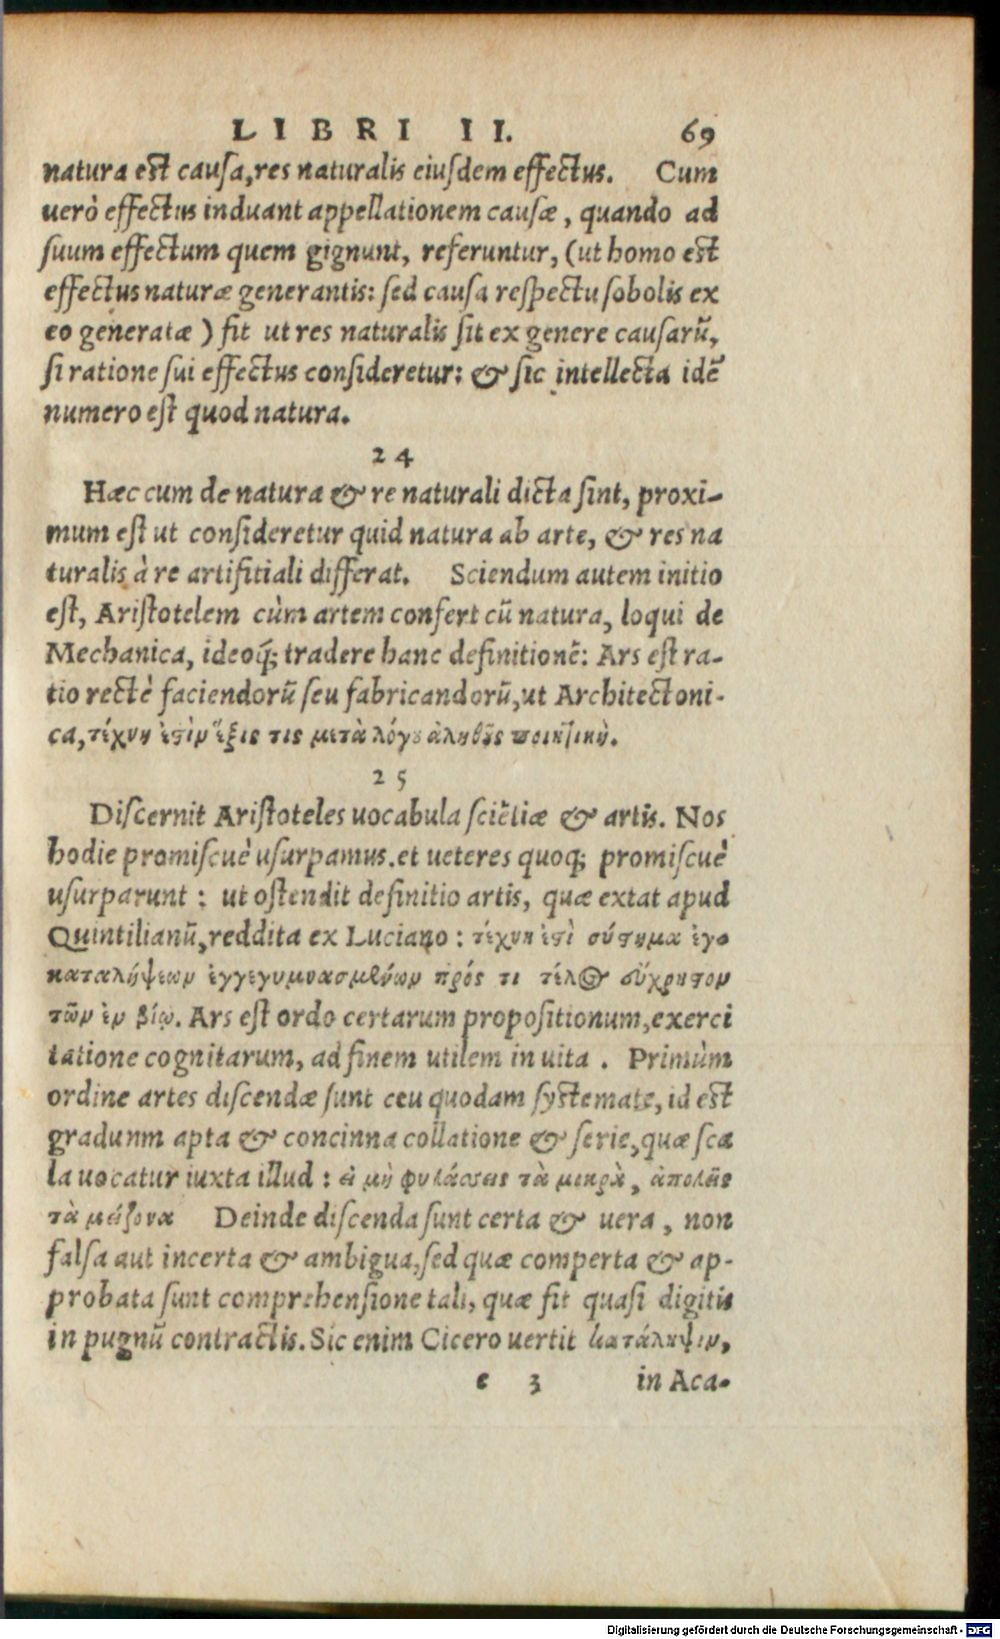 LIBRI II. 69
natura est causa, res naturalis eiusdem effectus. Cum
uerò effectus induant appellationem causæ, quando ad
suum effectum quem gignunt, referuntur, (ut homo est
effectus naturæ generantis: sed causa respectu sobolis ex
eo generatæ) fit ut res naturalis sit ex genere causarũ,
si ratione sui effectus consideretur: & sic intellecta idẽ
numero est quod natura.
24
Hæc cum de natura & re naturali dicta sint, proxi-
mum est ut consideretur quid natura ab arte, & res na
turalis à re artifitiali differat. Sciendum autem initio
est, Aristotelem cùm artem confert cũ natura, loqui de
Mechanica, ideoq́; tradere hanc definitionẽ: Ars est ra-
tio rectè faciendorũ seu fabricandorũ, ut Architectoni-
ca, τέχνη ἐστὶν ἕξις τις μετὰ λόγου ἀληθοῦς ποιητικὴ.
25
Discernit Aristoteles uocabula sciẽtiæ & artis. Nos
hodie promiscuè usurpamus. et ueteres quoq; promiscuè
usurparunt: ut ostendit definitio artis, quæ extat apud
Quintilianũ, reddita ex Luciano: τέχνη ἐστὶ σύστημα ἐγ
καταλήψεων ἐγγεγυμνασμένων πρός τι τέλος εὔχρηστον
τῶν ἐν βίῳ. Ars est ordo certarum propositionum, exerci
tatione cognitarum, ad finem utilem in uita. Primùm
ordine artes discendæ sunt ceu quodam systemate, id est
gradunm apta & concinna collatione & serie, quæ sca
la uocatur iuxta illud: εἰ μὴ φυλάσσεις τὰ μικρὰ, ἀπολεῖς
τὰ μείζονα Deinde discenda sunt certa & uera, non
falsa aut incerta & ambigua, sed quæ comperta & ap-
probata sunt comprehensione tali, quæ fit quasi digitis
in pugnũ contractis. Sic enim Cicero uertit κατάληψιν,
e 3 in Aca-
Digitalisierung gefördert durch die Deutsche Forschungsgemeinschaft - DFG